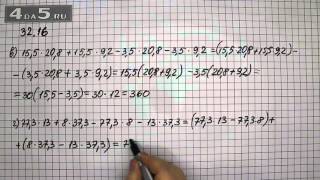 4da5.ru
32.16
в) 15,5·20,8 + 15,5·9,2 – 3,5·20,8 – 3,5·9,2 = (15,5·20,8+15,5·9,2) –
– (3,5·20,8 + 3,5·9,2) = 15,5(20,8+9,2) – 3,5(20,8+9,2) =
= 30(15,5 – 3,5) = 30·12 = 360
г) 77,3·13 + 8·37,3 – 77,3·8 – 13·37,3 = (77,3·13 – 77,3·8) +
+ (8·37,3 – 13·37,3) = 7